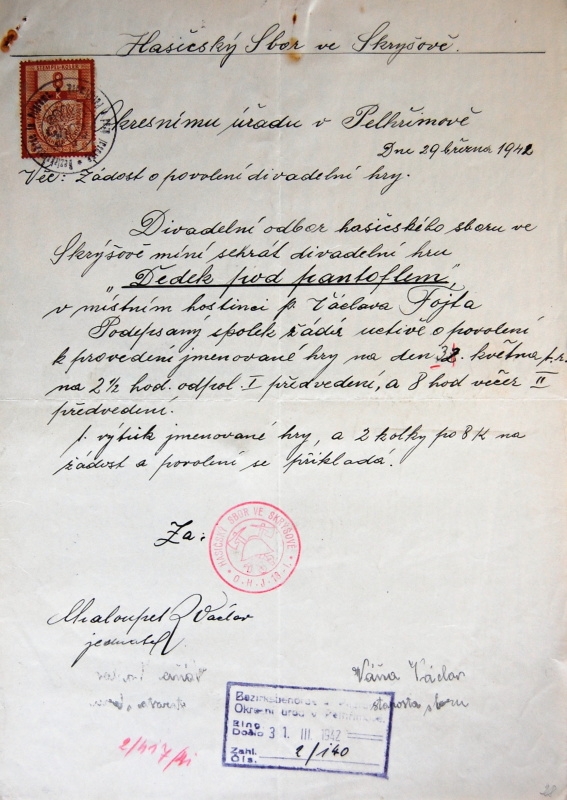 Hasičský Sbor ve Skryšově.
Okresnímu úřadu v Pelhřimově
Dne 29 března 1942
Věc: Žádost o povolení divadelní hry.
Divadelní odbor hasičského sboru ve
Skrýšově míní sehrát divadelní hru
"Dědek pod pantoflem",
v místním hostinci p. Václava Fojta
Podepsaný spolek žádá uctivě o povolení
k provedení jmenované hry na den května t.r.
na 2½ hod. odpol. I předvedení, a 8 hod večer II
předvedení.
1. výtisk jmenované hry, a 2 kolky po 8 K na
žádost a povolení se přikládá.
Za:
HASIČSKÝ SBOR VE SKRYŠOVĚ
O.H.J.
Chaloupek Václav
jednatel
Váňa Václav
starosta sboru
Bezirksbehörde
Okresní úřad v Pelhřimově
Eing.
Došlo 31. III. 1942
Zahl.
Čís. 2/140
2/417/